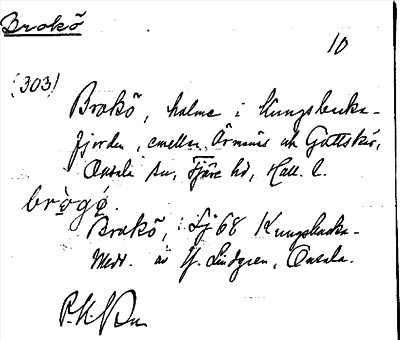 Brokö
10
(303)
Brokö, holme i Kungsbacka-
fjorden, emellan Örmanäs och Gottskär,
Onsala sn, Fjäre hd, Hall. l.
brògé.
Brokö, Sj 68 Kungsbacka.
Medd. av J. Lindgren, Onsala.